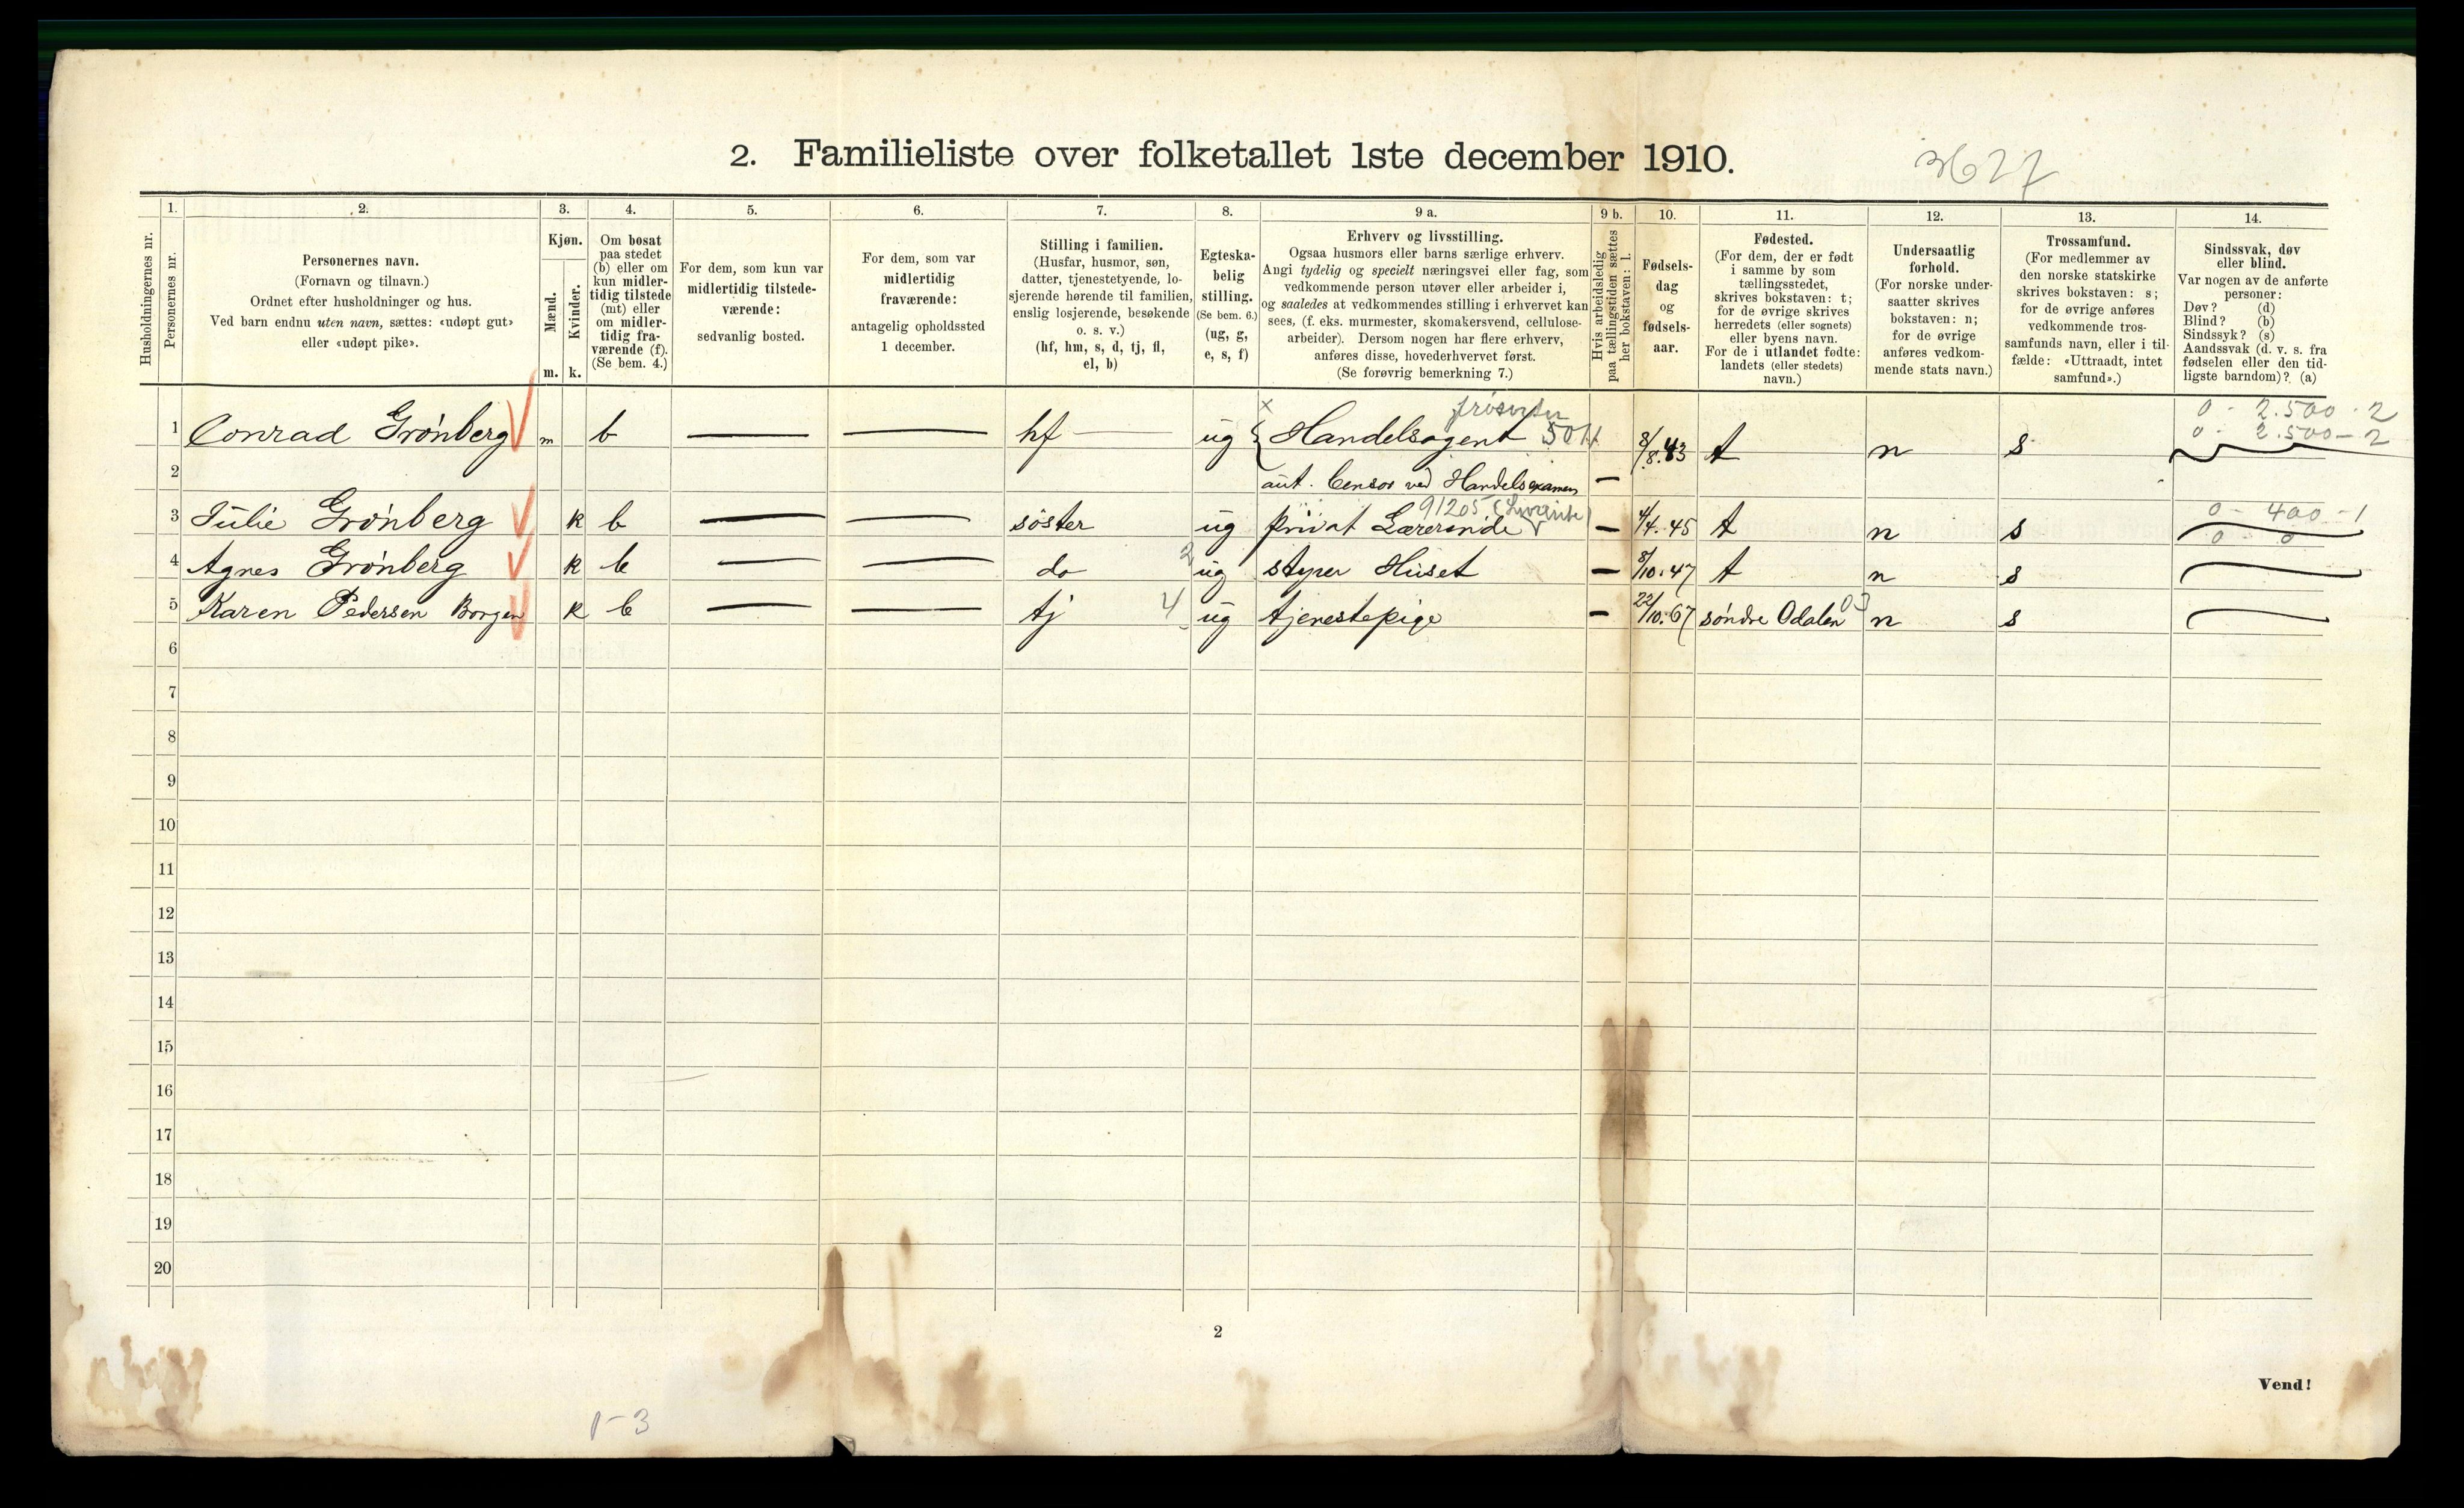 2. Familieliste over folketallet 1ste december 1910.
3627
1. 2. 3. 4. 5. 6. 7. 8. 9 a. 9 b. 10. 11. 12. 13. 14.
Husholdningernes nr.
Personernes nr.
Personernes navn.
(Fornavn og tilnavn.)
Ordnet efter husholdninger og hus.
Ved barn endnu uten navn, sættes: «udøpt gut»
eller «udøpt pike».
Kjøn.
Mænd.
Kvinder.
m. k.
Om bosat
paa stedet
(b) eller om
kun midler-
tidig tilstede
(mt) eller
om midler-
tidig fra-
værende (f).
(Se bem. 4.)
For dem, som kun var
midlertidig tilstede-
værende:
sedvanlig bosted.
For dem, som var
midlertidig
fraværende:
antagelig opholdssted
1 december.
Stilling i familien.
(Husfar, husmor, søn,
datter, tjenestetyende, lo-
sjerende hørende til familien,
enslig losjerende, besøkende
o. s. v.)
(hf, hm, s, d, tj, fl,
el, b)
Egteska-
belig
stilling.
(Se bem. 6.)
(ug, g,
e, s, f)
Erhverv og livsstilling.
Ogsaa husmors eller barns særlige erhverv.
Angi tydelig og specielt næringsvei eller fag, som
vedkommende person utøver eller arbeider i,
og saaledes at vedkommendes stilling i erhvervet kan
sees, (f. eks. murmester, skomakersvend, cellulose-
arbeider). Dersom nogen har flere erhverv,
anføres disse, hovederhvervet først.
(Se forøvrig bemerkning 7.)
Hvis arbeidsledig
paa tællingstiden sættes
her bokstaven: l.
Fødsels-
dag
og
fødsels-
aar.
Fødested.
(For dem, der er født
i samme by som
tællingsstedet,
skrives bokstaven: t;
for de øvrige skrives
herredets (eller sognets)
eller byens navn.
For de i utlandet fødte:
landets (eller stedets)
navn.)
Undersaatlig
forhold.
(For norske under-
saatter skrives
bokstaven: n;
for de øvrige
anføres vedkom-
mende stats navn.)
Trossamfund.
(For medlemmer av
den norske statskirke
skrives bokstaven: s;
for de øvrige anføres
vedkommende tros-
samfunds navn, eller i til-
fælde: «Uttraadt, intet
samfund».)
Sindssvak, døv
eller blind.
Var nogen av de anførte
personer:
Døv? (d)
Blind? (b)
Sindssyk? (s)
Aandssvak (d. v. s. fra
fødselen eller den tid-
ligste barndom)? (a)
0 - 2.500 - 2
1 Conrad Grønberg m b — — hf — ug Handelsagent 8/8.43 t n s 0 - 2.500 - 2
2 aut. Censor ved Handelsexamen —
91205 0 - 400 - 1
3 Julie Grønberg k b — — søster ug privat Lærerinde — 4/4.45 t n s
0 0
4 Agnes Grønberg k b — — do 2 ug styrer Huset — 8/10.47 t n s
5 Karen Pedersen Borgen k b — — tj 4 ug tjenestepige — 22/10.67 søndre Odalen 03 n s
6
7
8
9
10
11
12
13
14
15
16
17
18
19
20
2
Vend!
1-3